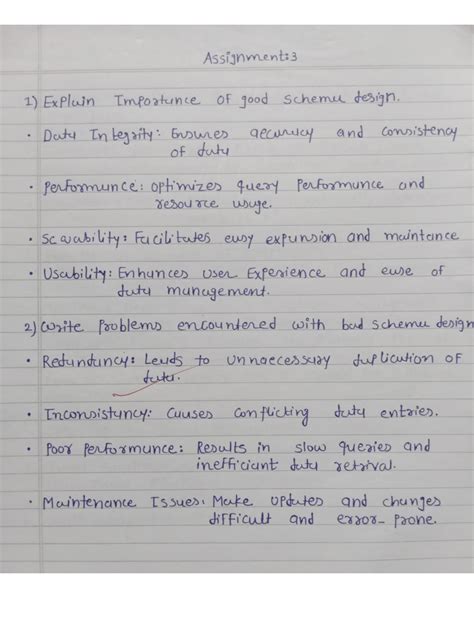 Assignment:3
1) Explain Importance of good schema design.
• Data Integrity: Ensures accuracy and consistency
of data
• Performance: optimizes query performance and
resource usage.
• Scalability: Facilitates easy expansion and maintance
• Usability: Enhances user Experience and ease of
data management.
2) Write Problems encountered with bad schema design
• Redundancy: Leads to unnaecessary duplication of
data.
• Inconsistancy: causes conflicting data entries.
• Poor performance: Results in slow queries and
inefficiant data retrival.
• Maintenance Issues: Make updates and changes
difficult and error-prone.